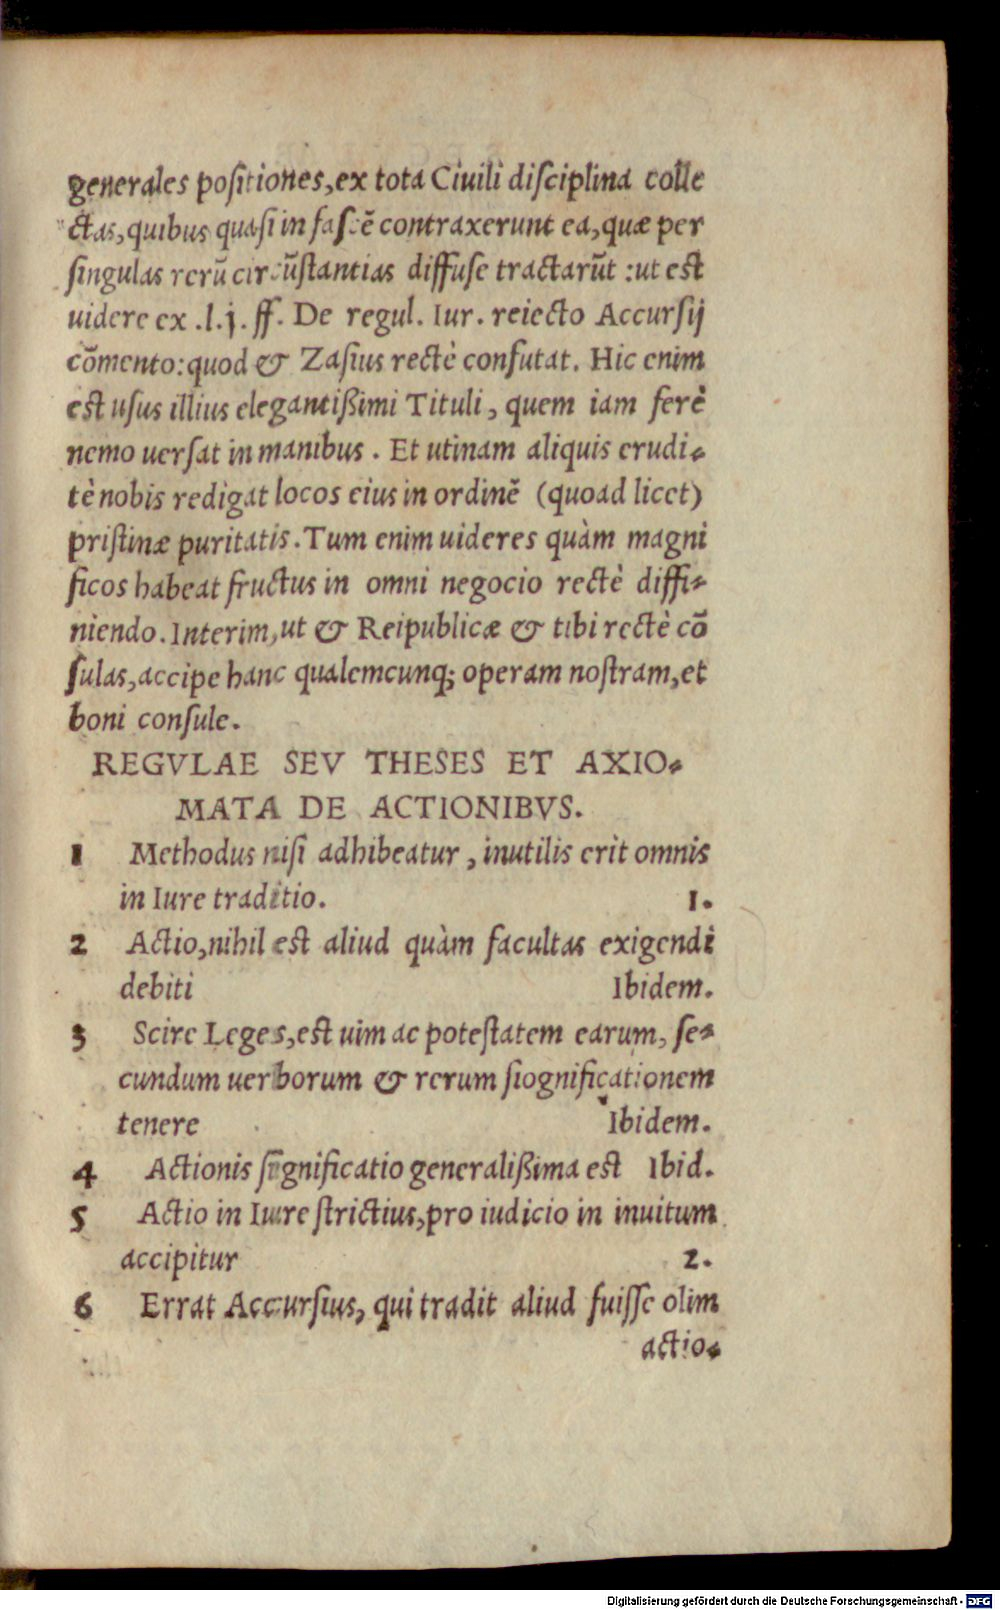 generales positiones, ex tota Ciuili disciplina colle
ctas, quibus quasi in fascē contraxerunt ea, quæ per
singulas rerū circūstantias diffuse tractarūt : ut est
uidere ex .l.j. ff. De regul. Iur. reiecto Accursij
cōmento: quod & Zasius rectè confutat. Hic enim
est usus illius elegantißimi Tituli, quem iam ferè
nemo uersat in manibus. Et utinam aliquis erudi-
tè nobis redigat locos eius in ordinē (quoad licet)
pristinæ puritatis. Tum enim uideres quàm magni
ficos habeat fructus in omni negocio rectè diffi-
niendo. Interim, ut & Reipublicæ & tibi rectè cō
sulas, accipe hanc qualemcunq; operam nostram, et
boni consule.
REGVLAE SEV THESES ET AXIO-
MATA DE ACTIONIBVS.
1 Methodus nisi adhibeatur, inutilis erit omnis
in Iure traditio. 1.
2 Actio, nihil est aliud quàm facultas exigendi
debiti Ibidem.
3 Scire Leges, est uim ac potestatem earum, se-
cundum uerborum & rerum siognificationem
tenere Ibidem.
4 Actionis significatio generalißima est Ibid.
5 Actio in Iure strictius, pro iudicio in inuitum
accipitur 2.
6 Errat Accursius, qui tradit aliud fuisse olim
actio-
Digitalisierung gefördert durch die Deutsche Forschungsgemeinschaft - DFG